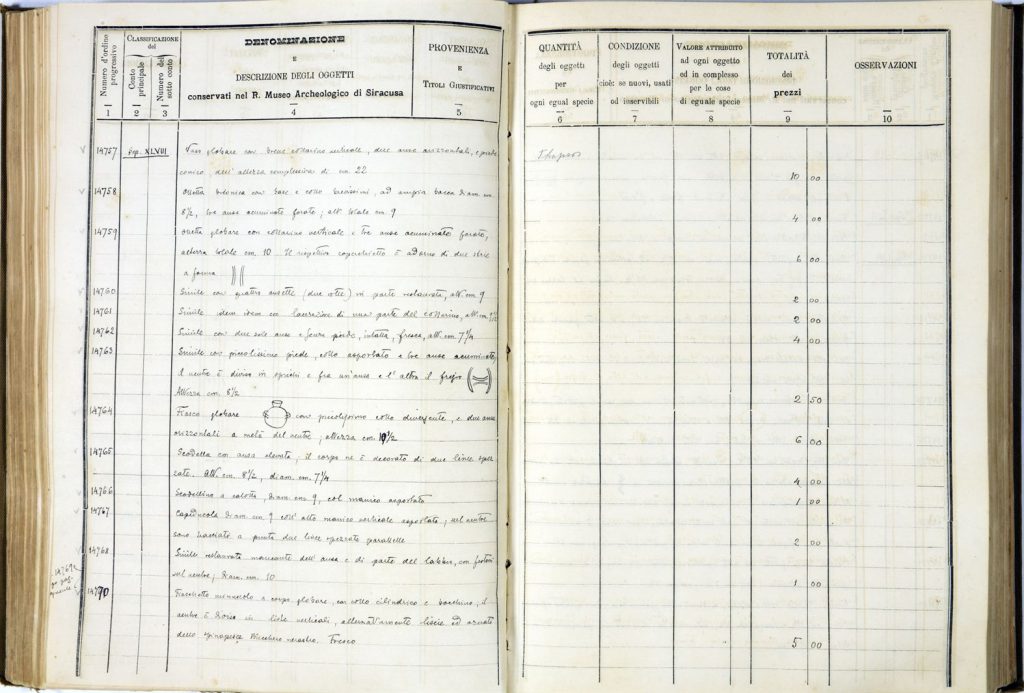 Numero d'ordine progressivo
Classificazione del
Conto principale
Numero del sotto conto
DENOMINAZIONE
E
DESCRIZIONE DEGLI OGGETTI
conservati nel R. Museo Archeologico di Siracusa
PROVENIENZA
E
TITOLI GIUSTIFICATIVI
1 2 3 4 5
14757 Sep. XLVII Vaso globare con breve collarino verticale, due anse orizzontali, e piede
conico, dell'altezza complessiva di cm. 22
14758 Olletta con base e collo bassissimi, ad ampia bocca diam. cm.
8½, tre anse acuminate forate; alt. totale cm. 9
14759 Olletta globare con collarino verticale e tre anse acuminate forate,
altezza totale cm. 10 Il rispettivo coperchietto è adorno di due strie
a forma
14760 Simile con quattro ansette (due rotte) in parte restaurata, alt. cm 9
14761 Simile idem idem con di una parte del collarino, alt. cm.
14762 Simile con due sole anse e piede, intatta, fresca, alt. cm.
14763 Simile con piccolissimo piede, collo asportato e tre anse acuminate,
il ventre è diviso in spicchi e fra un'ansa e l'altra il fregio
Altezza cm. 8½
14764 Fiasco globare con piccolissimo collo divergente, e due anse
orizzontali a metà del ventre; altezza cm.
14765 Scodella con ansa elevata; il corpo ne è decorato di due linee spez
zate. Alt. cm. 8½, diam. cm.
14766 Scodellino a calotta, diam. cm 9, col manico asportato
14767 Capeduncola diam. cm. 9 coll'alto manico verticale asportato; nel ventre
sono tracciate a punta due linee spezzate parallele
14768 Simile restaurata mancante dell'ansa e di parte del labbro, con
nel ventre; diam. cm. 10
14769
14770 Fiaschetto minuscolo a corpo globare, con collo cilindrico e bocchino; il
ventre è diviso in liste verticali, alternativamente liscie ed ornate
dello spinapesce Bucchero nerastro. Fresco
QUANTITÀ
degli oggetti
per
ogni egual specie
CONDIZIONE
degli oggetti
cioè: se nuovi, usati
od inservibili
VALORE ATTRIBUITO
ad ogni oggetto
ed in complesso
per le cose
di eguale specie
TOTALITÀ
dei
prezzi
OSSERVAZIONI
6 7 8 9 10
Thapsos
10 00
4 00
6 00
2 00
2 00
4 00
2 50
6 00
4 00
1 00
2 00
1 00
5 00